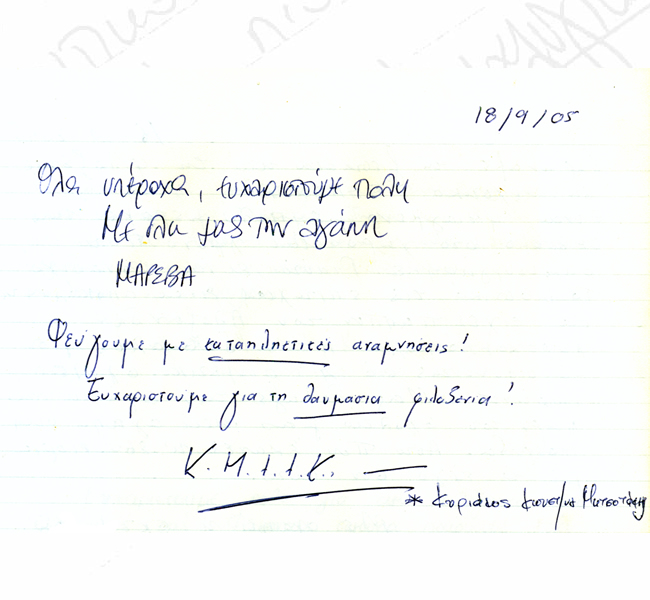 18/9/05
Όλα υπέροχα, ευχαριστούμε πολύ
Με όλη μας την αγάπη
ΜΑΡΕΒΑ
Φεύγουμε με καταπληκτικές αναμνησεις!
Ευχαριστουμε για τη θαυμασια φιλοξενια!
Κ.Μ.
* Κυριάκος Μητσοτάκης